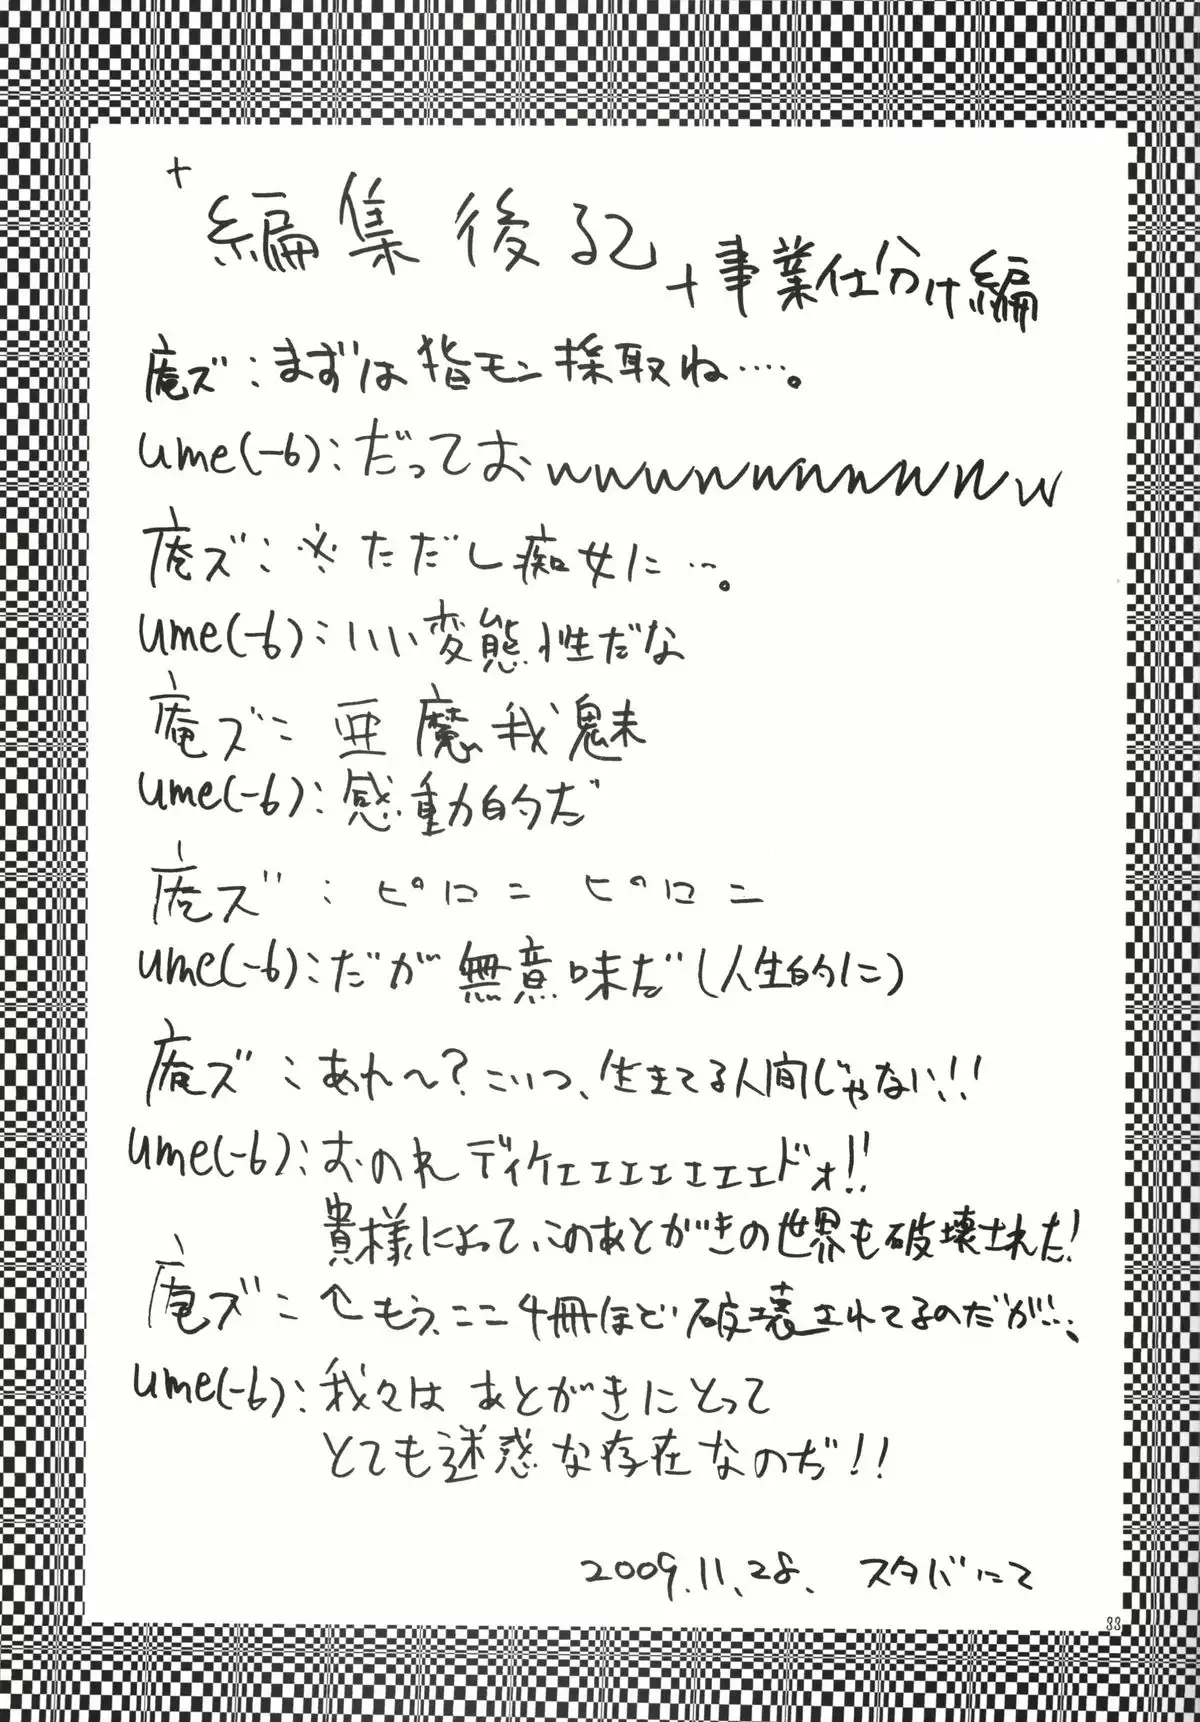 +
編集後記
+事業仕分け編
庵ズ:まずは指モン採取ね‥‥。
ume(-6):だっておwwwwwwwwwwww
庵ズ:※ただし痴女に…。
ume(-6):いい変態性だな
庵ズ:亜魔我魅
ume(-6):感動的だ
庵ズ:ピロニ ピロニ
ume(-6):だが無意味だ(人生的に)
庵ズ:あれ~?こいつ、生きてる人間じゃない!!
ume(-6):おのれディケェェェェェェェドォ!!
貴様によって、このあとがきの世界も破壊された!
庵ズ:↑もう、ここ4冊ほど破壊されてるのだが…、
ume(-6):我々はあとがきにとって
とても迷惑な存在なのぢ!!
2009.11.28. スタバにて
33